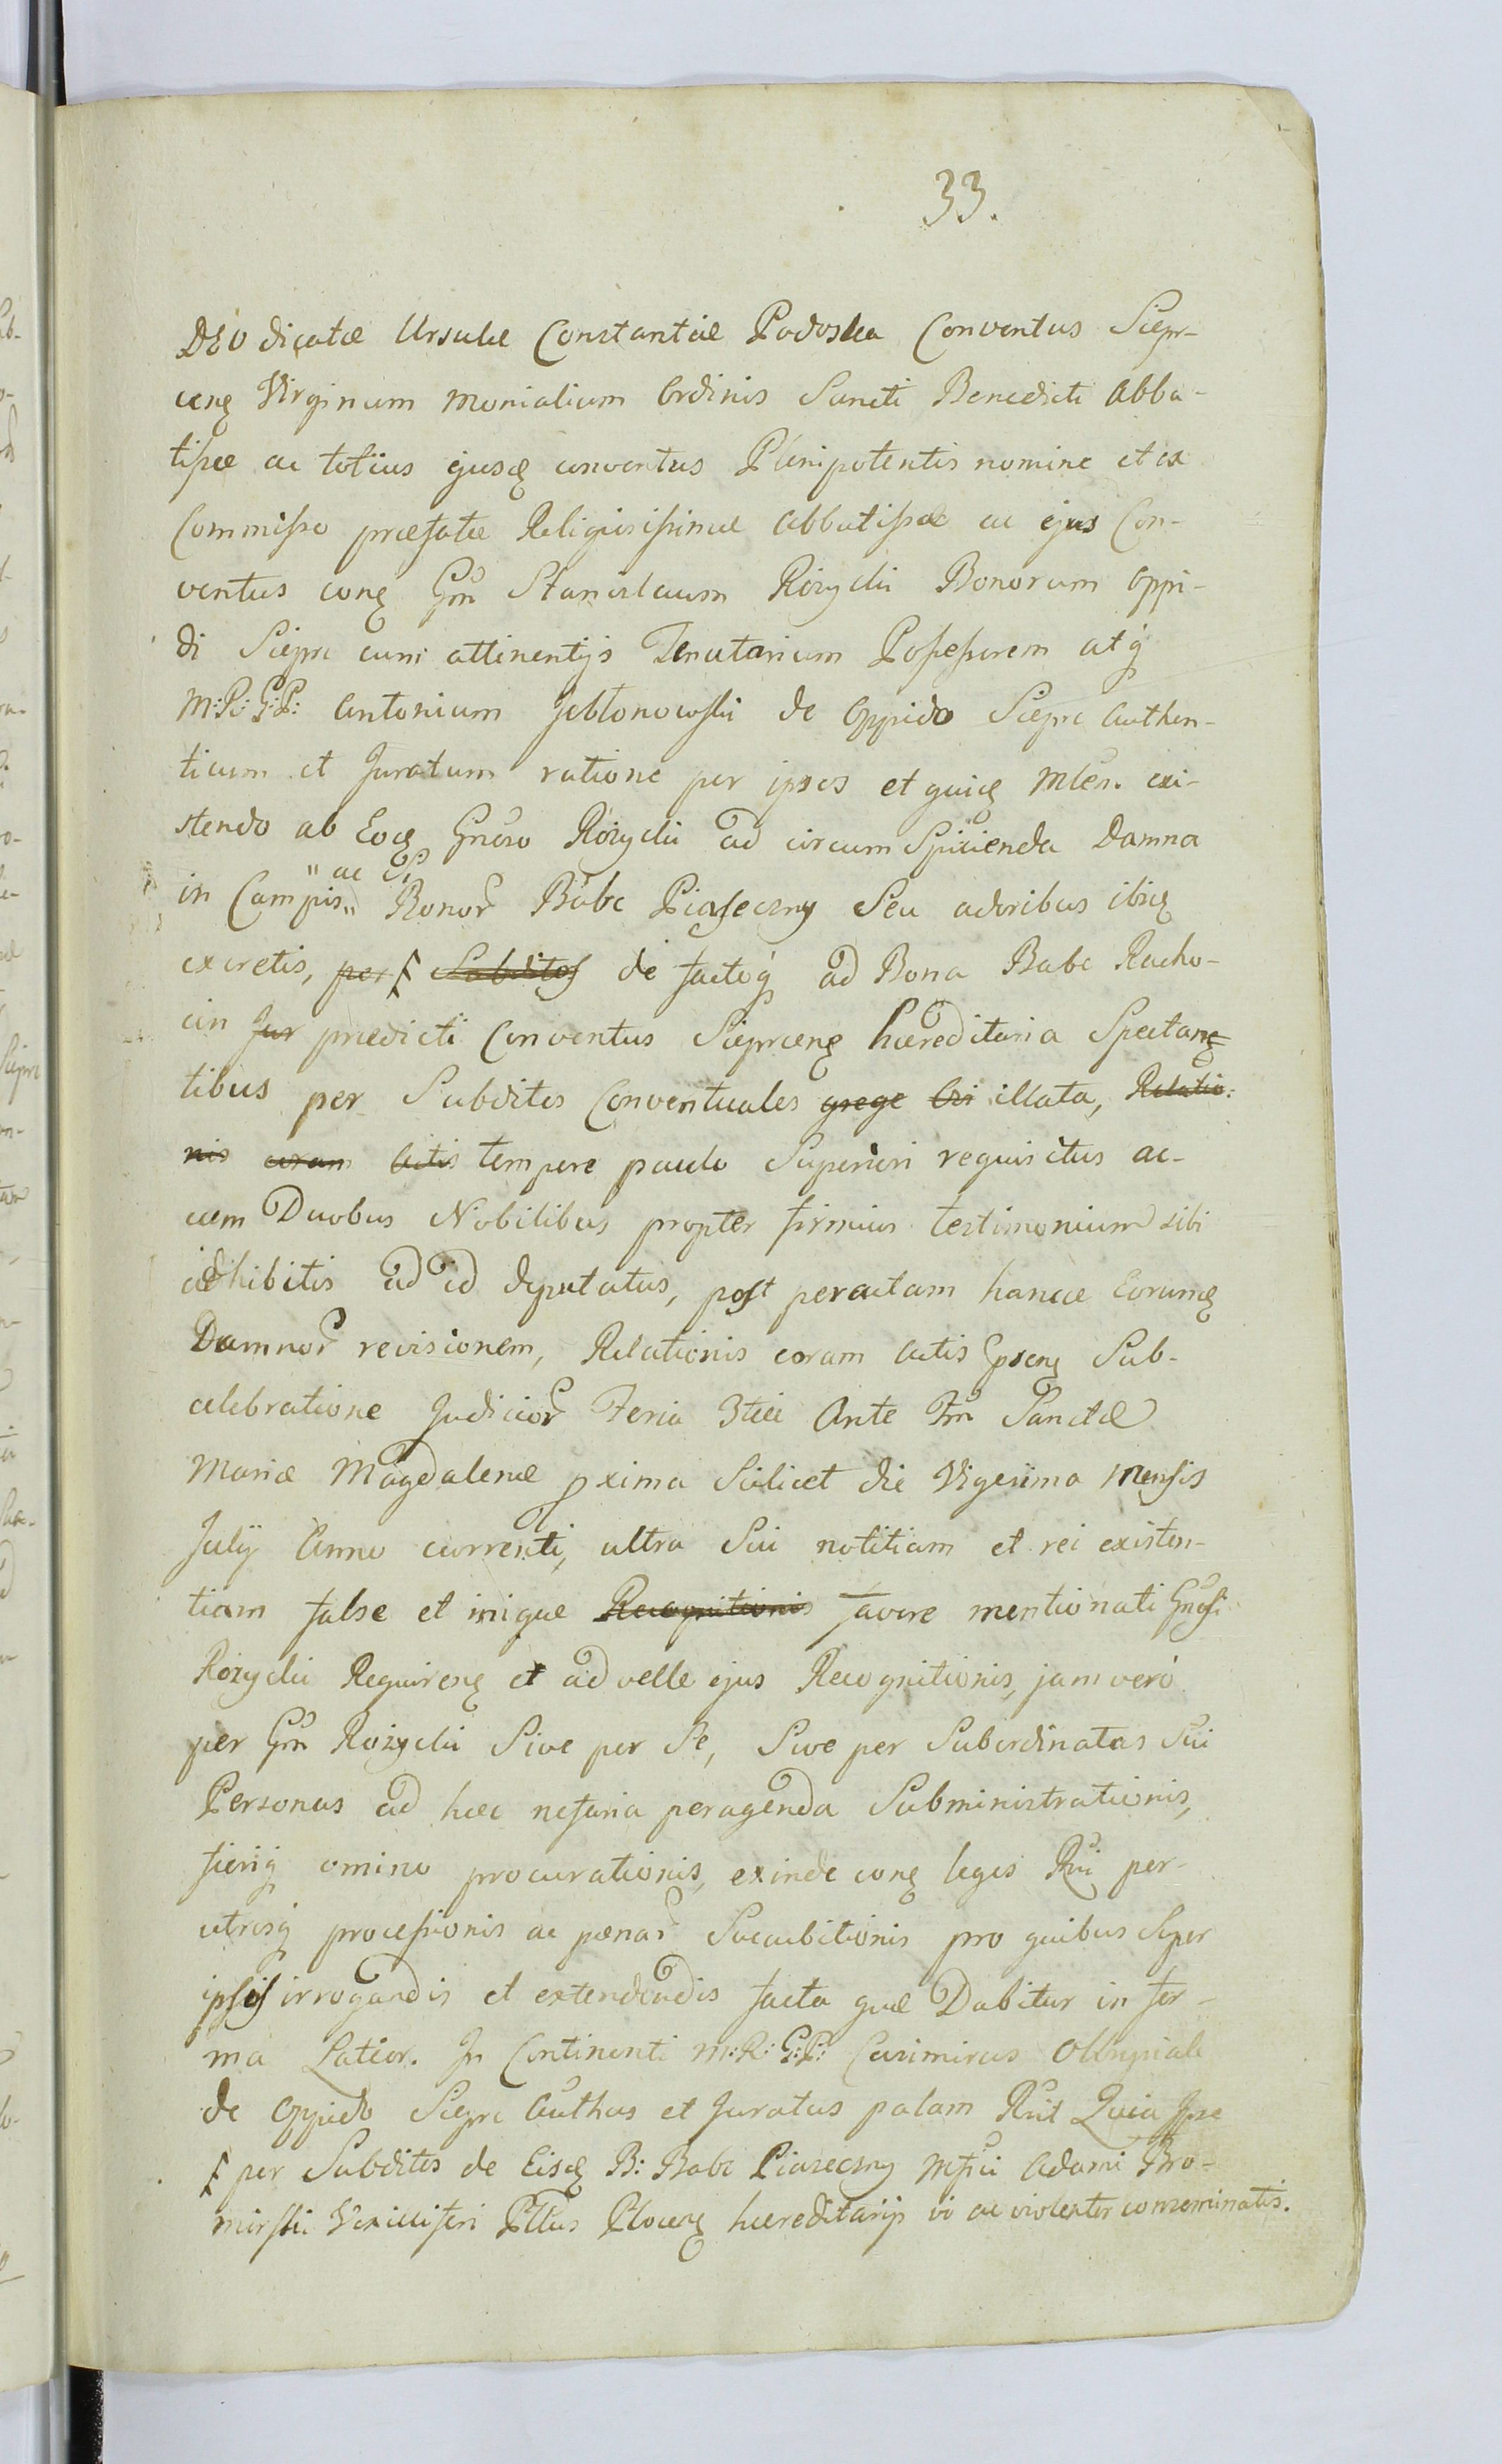 33.
DEO dicatæ Ursulæ Constantiæ Podoska Conventus Siepr-
cens Virginum Monialium Ordinis Sancti Benedicti Abba-
tißæ ac totius ejusd conventus Plenipotentis nomine et ex
Commißo præfatæ Religiosißimæ Abbatißæ ac ejus Con-
ventus con Gm̃ Stanislaum Rózycki Bonorum Oppi-
di Sieprc cum attinentijs Tenutarium Poßeßorem atq̃
M:R:G:P: Antonium Jabłonowski de Oppido Sieprc Authen-
ticum et Juratum ratione per ipsos et quid Mlẽr. exi-
stendo ab Eod Gnõso Rózycki ad circum Spicienda Damna
in Campis " ac " Bonor̃ Babc Piaseczny Seu adoribus ibid
excretis, per ƒ Subditos de factoq̃ ad Bona Babc Racho-
cin Jur prædicti Conventus Sieprcens hæreditaria Spectan-
tibus per Subditos Conventuales grege illata, Relatio-
nis coram Actis tempore paulo Superiori requisitus ac
cum Duobus Nobilibus propter firmius testimonium sibi
adhibitis ad id deputatus, post peractam hancce Eorumd
Damnor̃ revisionem, Relationis coram Actis Sub-
celebratione Judicior̃ Feria 3tia Ante Fm̃ Sanctæ
Mariæ Magdalenæ pxima Scilicet die Vigesima Mensis
Julij Anno currenti, ultra Sui notitiam et rei existen-
tiam false et inique Recognitionis favore mentionati Gnõsi
Rózycki Requirens et ad velle ejus Recognitionis, jam vero
per Gm̃ Rozycki Sive per Se, Sive per Subordinatas Sui
Personas ad hæc nefaria peragenda Subministrationis,
fieriq̃ omino procurationis, exinde con leges Rñi per
utrosq̃ proceßionis ac pœnar̃ Succubitionis pro quibus Super
ipsos irrogandis et extendendis facta quæ Dabitur in for-
ma Latior. In Continenti M:R:G:P: Casimirus
de Oppido Sieprc Authus et Juratus palam Rñit Quia Ipse
ƒ per Subditos de Eisd B: Babc Piaseczny Mfci Adami Bro-
mirski Vexilliferi Pltus Plocens hæreditarijs vi ac violenter conseminatis.